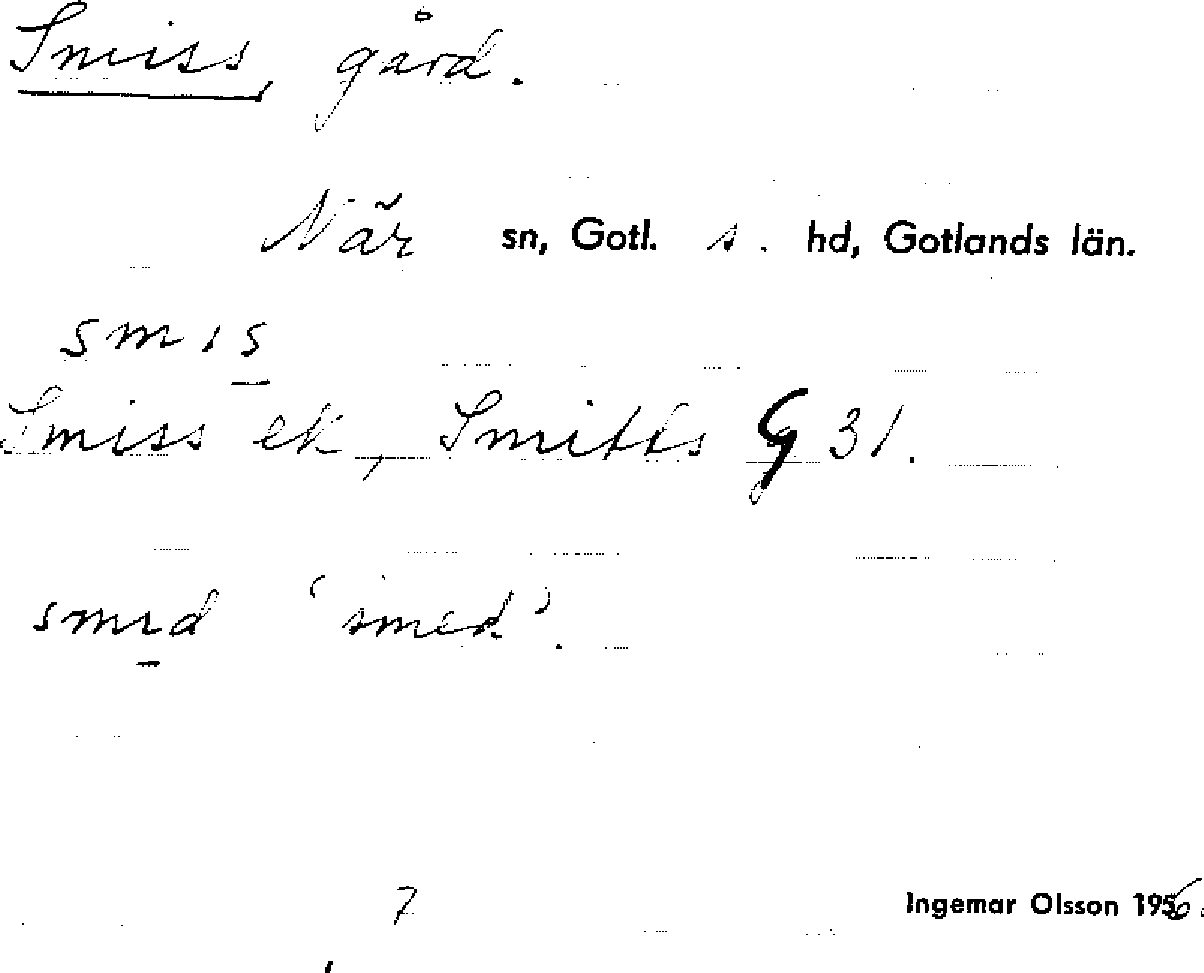 Smiss, gård.
När sn, Gotl. s. hd, Gotlands län.
smıs̲
Smiss ek, Smitts G 31.
smı̲d ‘smed’.
7
Ingemar Olsson 1956.